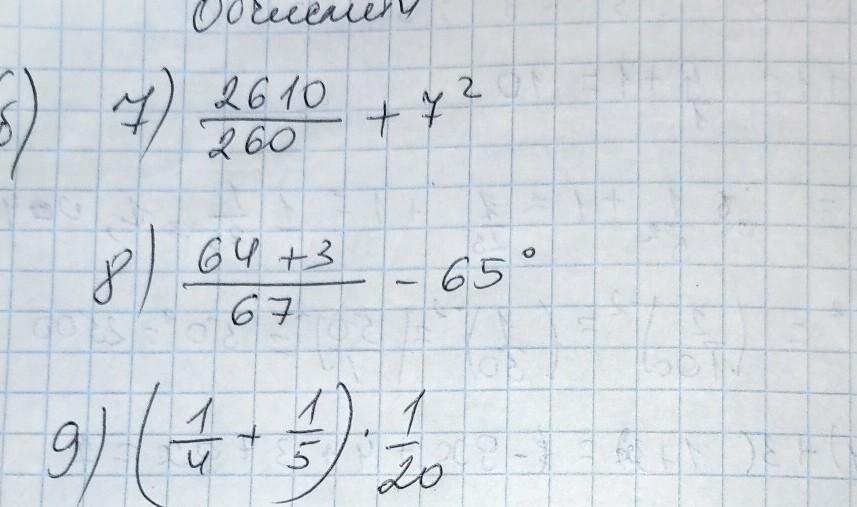 Обчислити
б) 7) 2610/260 + 7²
8) (64 + 3)/67 - 65°
9) (1/4 + 1/5) · 1/20